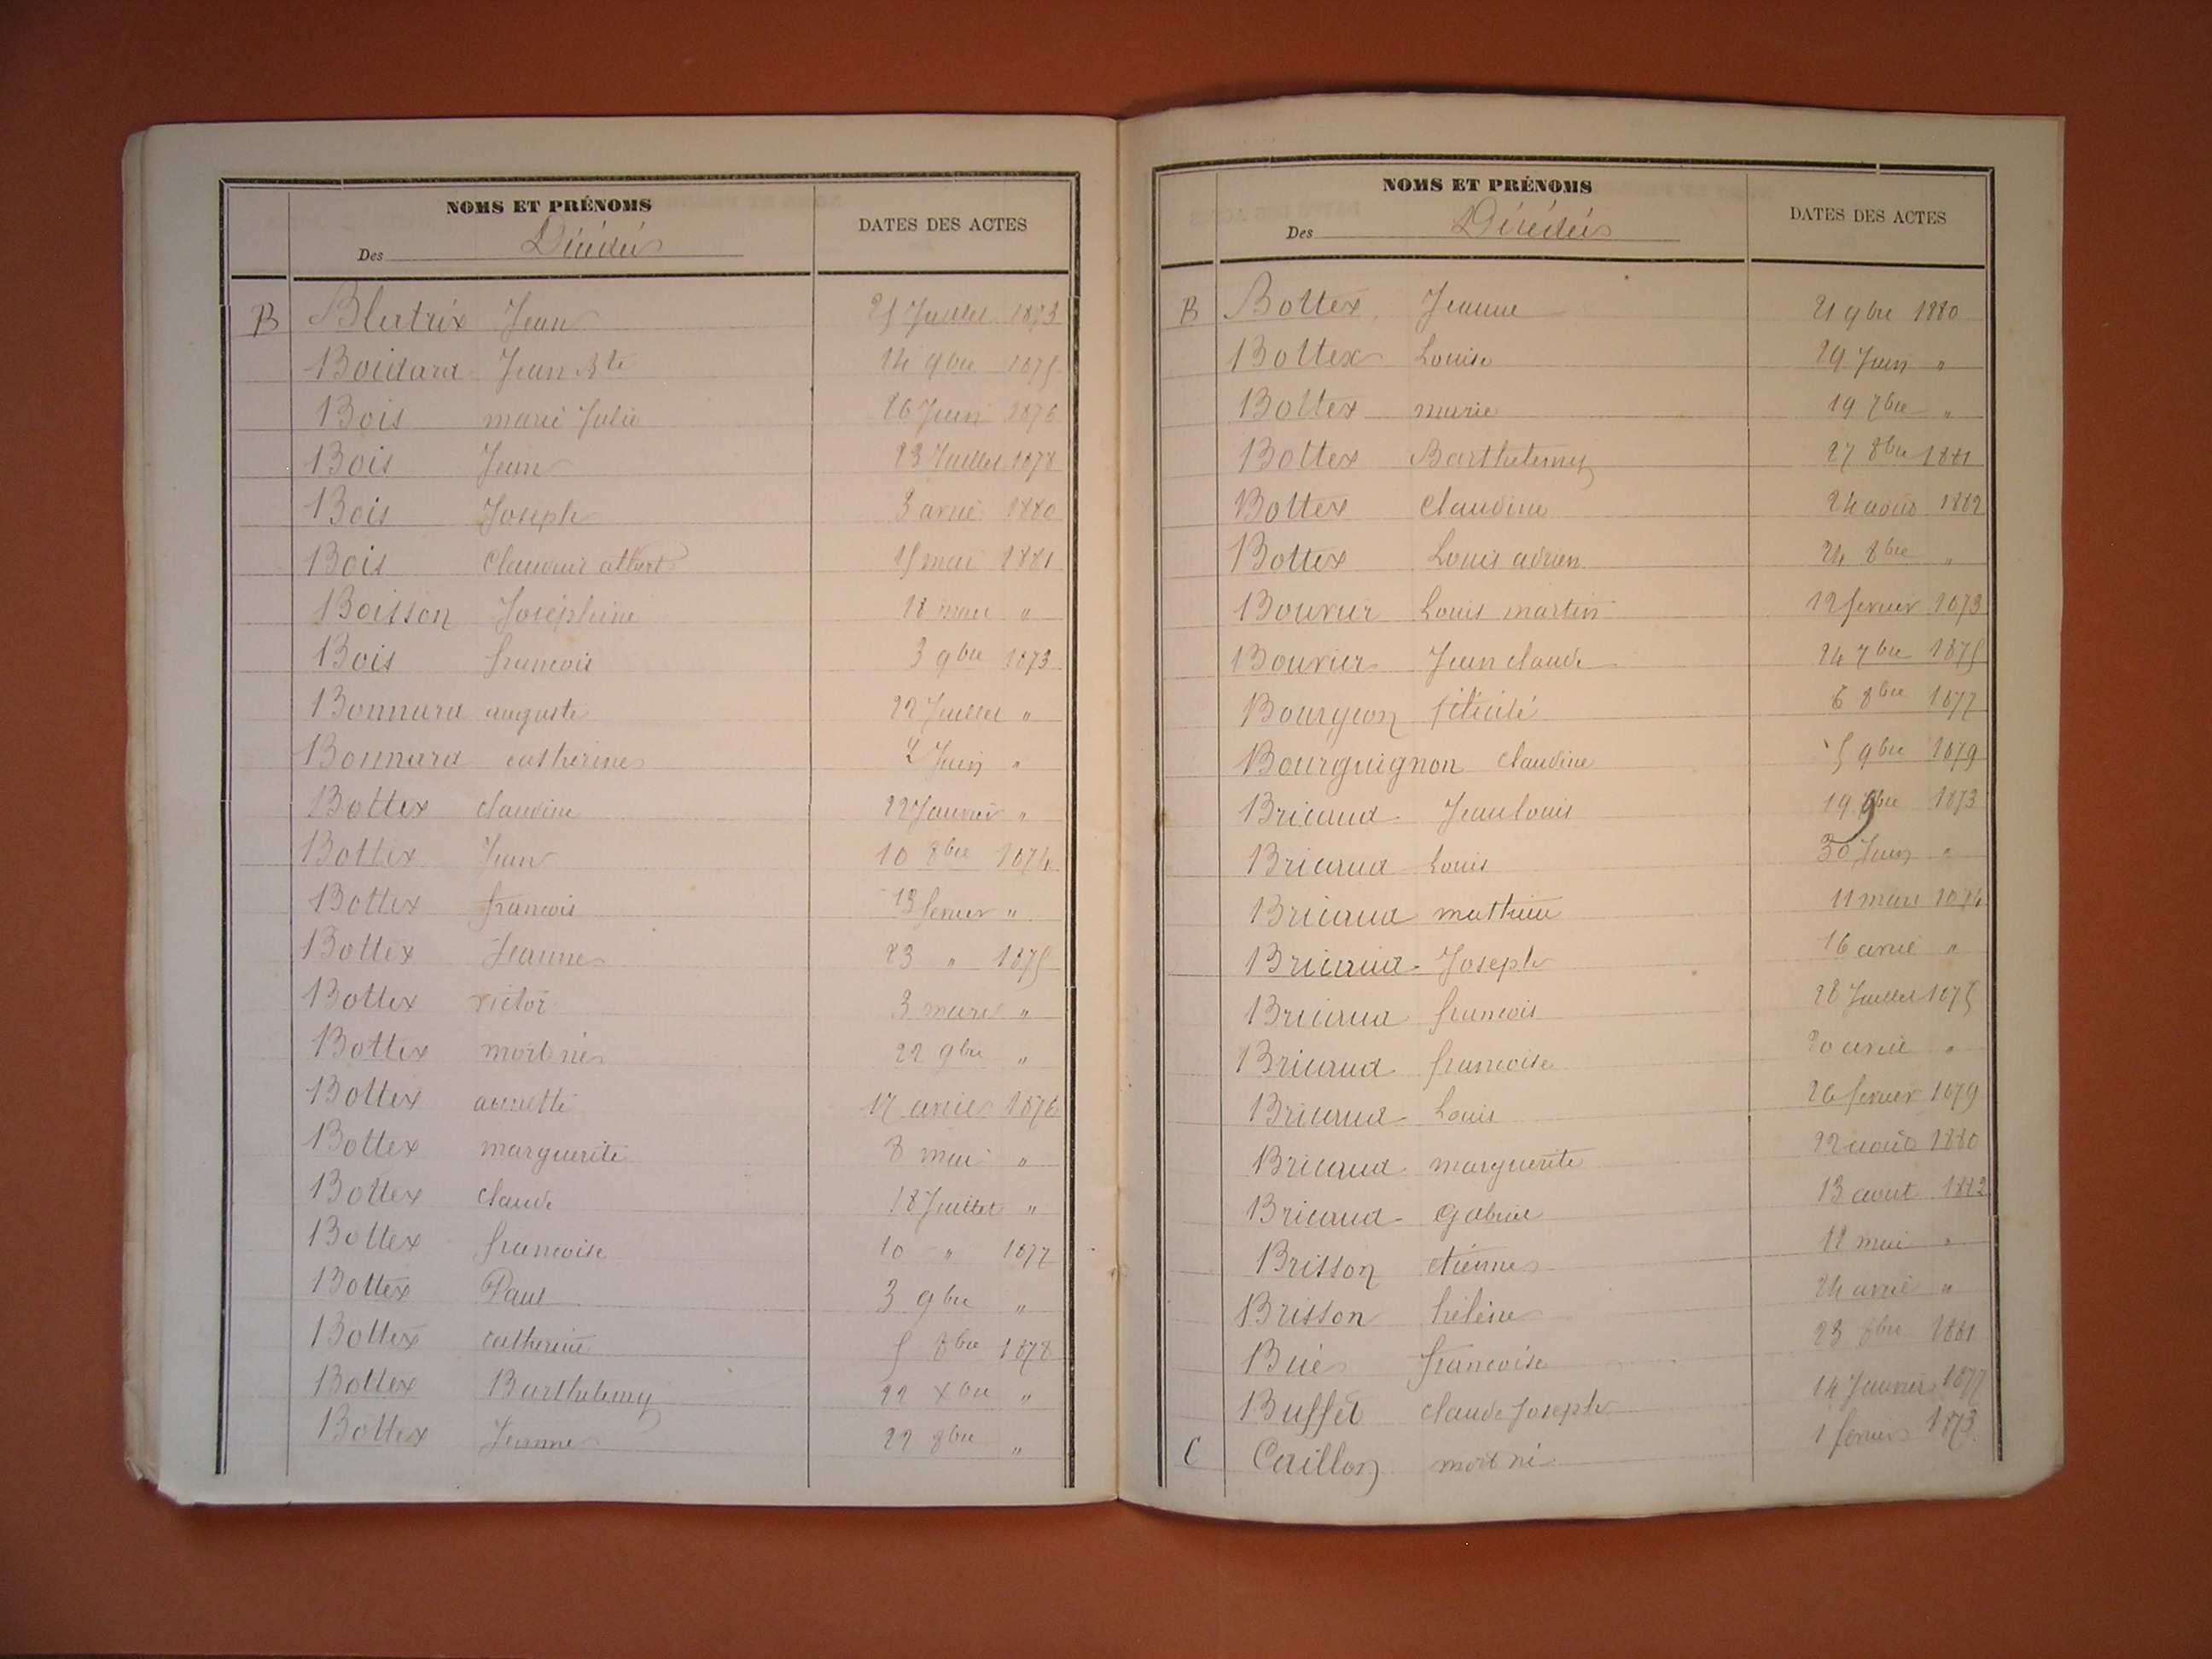 NOMS ET PRÉNOMS
Des Décédés
DATES DES ACTES
B Blatrix Jean 25 Juillet 1873
Boidard Jean Bte 14 9bre 1875
Bois marie Julie 26 Juin 1876
Bois Jean 23 Juillet 1878
Bois Joseph 3 avril 1880
Bois Claudius albert 15 mai 1881
Boisson Joséphine 18 mars "
Bois francois 3 9bre 1873
Bonnard auguste 22 Juillet "
Bonnard catherine 2 Juin "
Bottex claudine 22 Janvier "
Bottex Jean 10 8bre 1874
Bottex francois 13 fevrier "
Bottex Jeanne 23 " 1875
Bottex victor 3 mars "
Bottex mort né 22 9bre "
Bottex annette 17 avril 1876
Bottex marguerite 8 mai "
Bottex claude 18 Juillet "
Bottex francoise 10 " 1877
Bottex Paul 3 9bre "
Bottex catherine 5 8bre 1878
Bottex Barthelemy 22 xbre "
Bottex Jeanne 22 8bre "
NOMS ET PRÉNOMS
Des Décédés
DATES DES ACTES
B Bottex Jeanne 21 9bre 1880
Bottex Louise 29 Juin "
Bottex marie 19 7bre "
Bottex Barthelemy 27 8bre 1881
Bottex Claudine 24 août 1882
Bottex Louis adrien 24 8bre "
Bouvier Louis martin 12 fevrier 1873
Bouvier Jean claude 24 7bre 1875
Bourgeon félicité 6 8bre 1877
Bourguignon Claudine 5 9bre 1879
Bricaud Jean louis 19 9bre 1873
Bricaud Louis 30 Juin "
Bricaud mathieu 11 mars 1874
Bricaud Joseph 16 avril "
Bricaud francois 28 Juillet 1875
Bricaud francoise 20 avril "
Bricaud Louis 26 fevrier 1879
Bricaud marguerite 22 août 1880
Bricaud gabriel 13 aout 1882
Brisson etienne 12 mai "
Brisson hélène 24 avril "
Brié francoise 23 8bre 1881
Buffet claude Joseph 14 Janvier 1877
C Caillon mort né 1 fevrier 1873